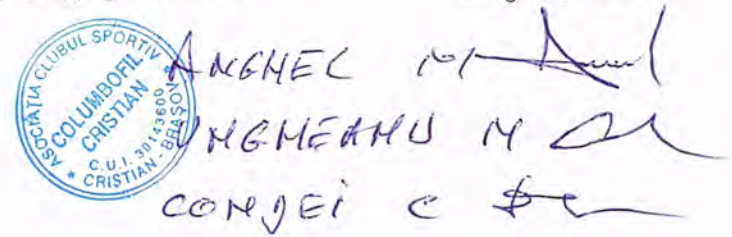 ASOCIAȚIA CLUBUL SPORTIV
COLUMBOFIL
CRISTIAN
C.U.I. 30143600
* CRISTIAN - BRAȘOV *
ANGHEL M
UNGHEANU M
CONDEI C